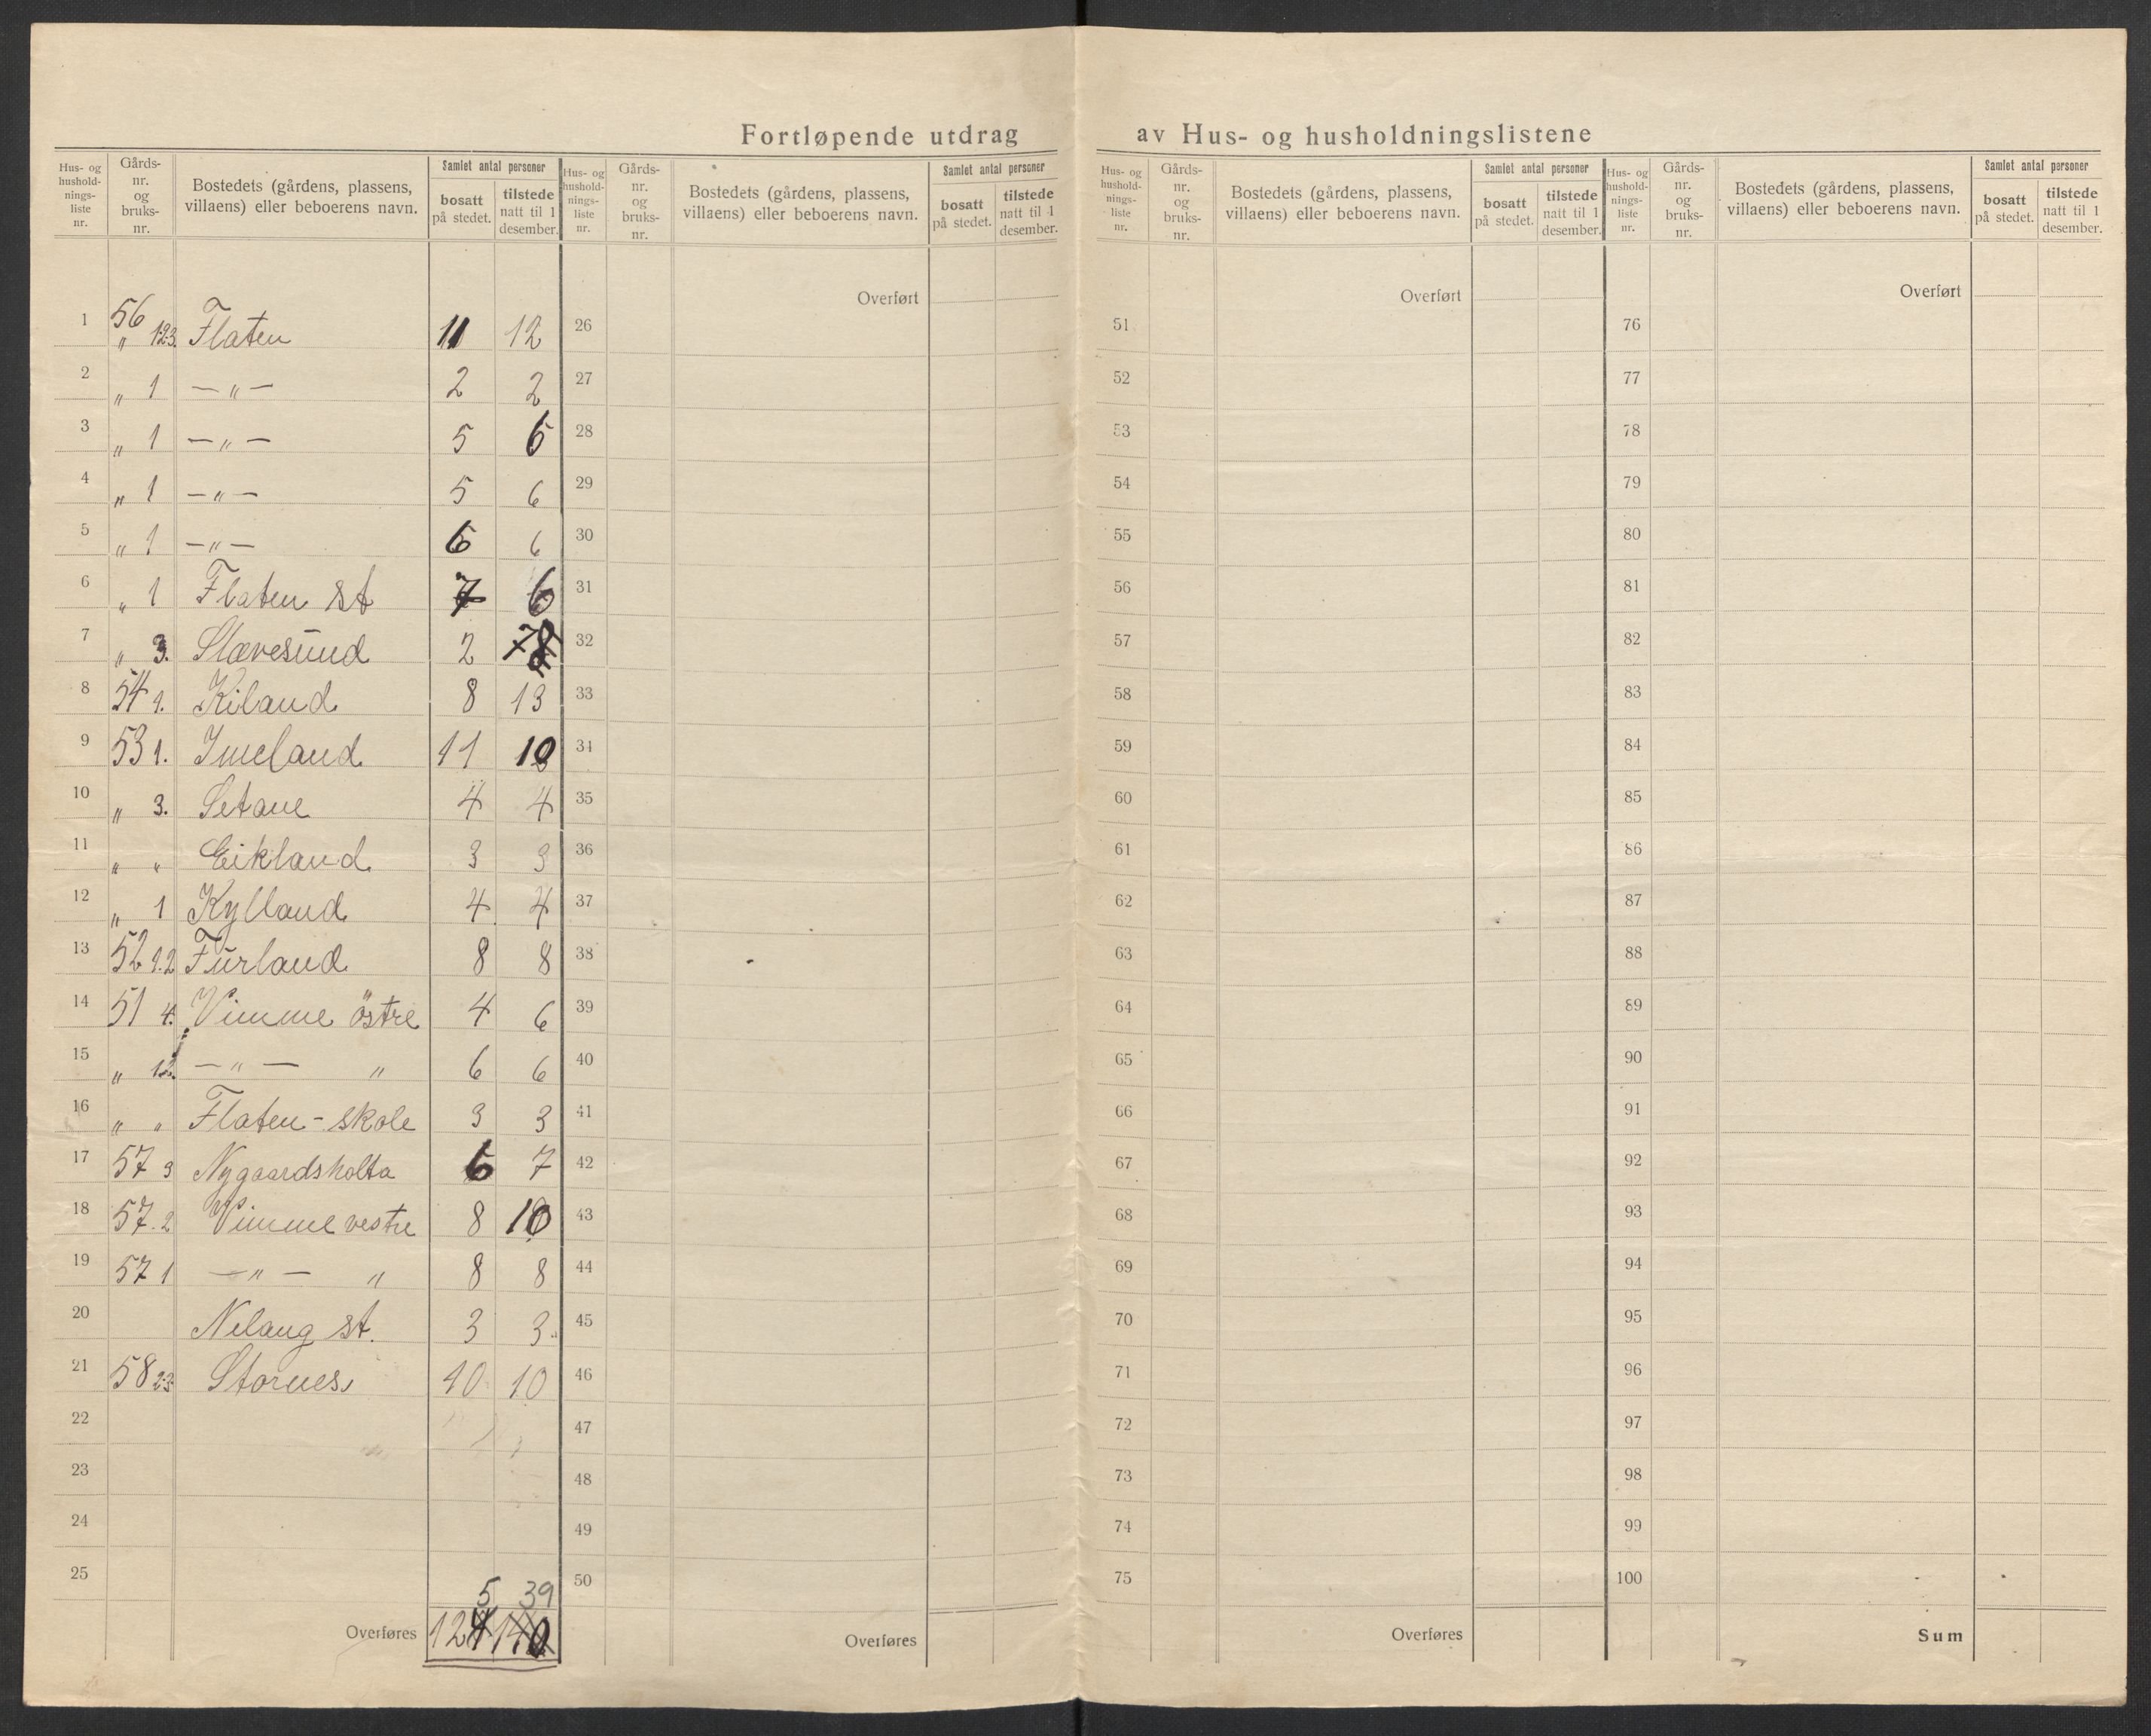 Fortløpende utdrag av Hus- og husholdningslistene
Hus- og hushold- nings- liste nr.
Gårds- nr. og bruks- nr.
Bostedets (gårdens, plassens, villaens) eller beboerens navn.
Samlet antal personer
bosatt på stedet.
tilstede natt til 1 desember.
Hus- og hushold- nings- liste nr.
Gårds- nr. og bruks- nr.
Bostedets (gårdens, plassens, villaens) eller beboerens navn.
Samlet antal personer
bosatt på stedet.
tilstede natt til 1 desember.
Hus- og hushold- nings- liste nr.
Gårds- nr. og bruks- nr.
Bostedets (gårdens, plassens, villaens) eller beboerens navn.
Samlet antal personer
bosatt på stedet.
tilstede natt til 1 desember.
Hus- og hushold- nings- liste nr.
Gårds- nr. og bruks- nr.
Bostedets (gårdens, plassens, villaens) eller beboerens navn.
Samlet antal personer
bosatt på stedet.
tilstede natt til 1 desember.
1 56 „ 1.2.3. Flaten 11 12
2 „ 1 — „ — 2 2
3 „ 1 — „ — 5 6
4 „ 1 — „ — 5 6
5 „ 1 — „ — 6 6
6 „ 1 Flaten st 7 6
7 „ 3. Slævesund 2
8 54 1. Kiland 8 13
9 53 1. Imeland 11 10
10 „ 3. Setane 4 4
11 „ „ Eikland 3 3
12 „ 1 Kylland 4 4
13 52 1.2 Furland 8 8
14 51 4. Vimme östre 4 6
15 „ — „ — „ 6 6
16 „ „ Flaten - skole 3 3
17 57 3 Nygaardsholta 6 7
18 57.2 Vimme vestre 8 10
19 57 1 — „ — „ 8 8
20 Nelaug st. 3 3
21 58 2.3 Stornes 10 10
22
23
24
25
5 39
Overføres 124 140
Overført
26
27
28
29
30
31
32
33
34
35
36
37
38
39
40
41
42
43
44
45
46
47
48
49
50
Overføres
Overført
51
52
53
54
55
56
57
58
59
60
61
62
63
64
65
66
67
68
69
70
71
72
73
74
75
Overføres
Overført
76
77
78
79
80
81
82
83
84
85
86
87
88
89
90
91
92
93
94
95
96
97
98
99
100
Sum